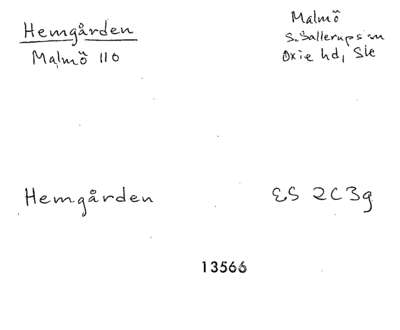 Hemgården
Malmö 110
Malmö
S. Sallerups sn
Oxie hd, Skе
Hemgården
ES 2C3g
13566